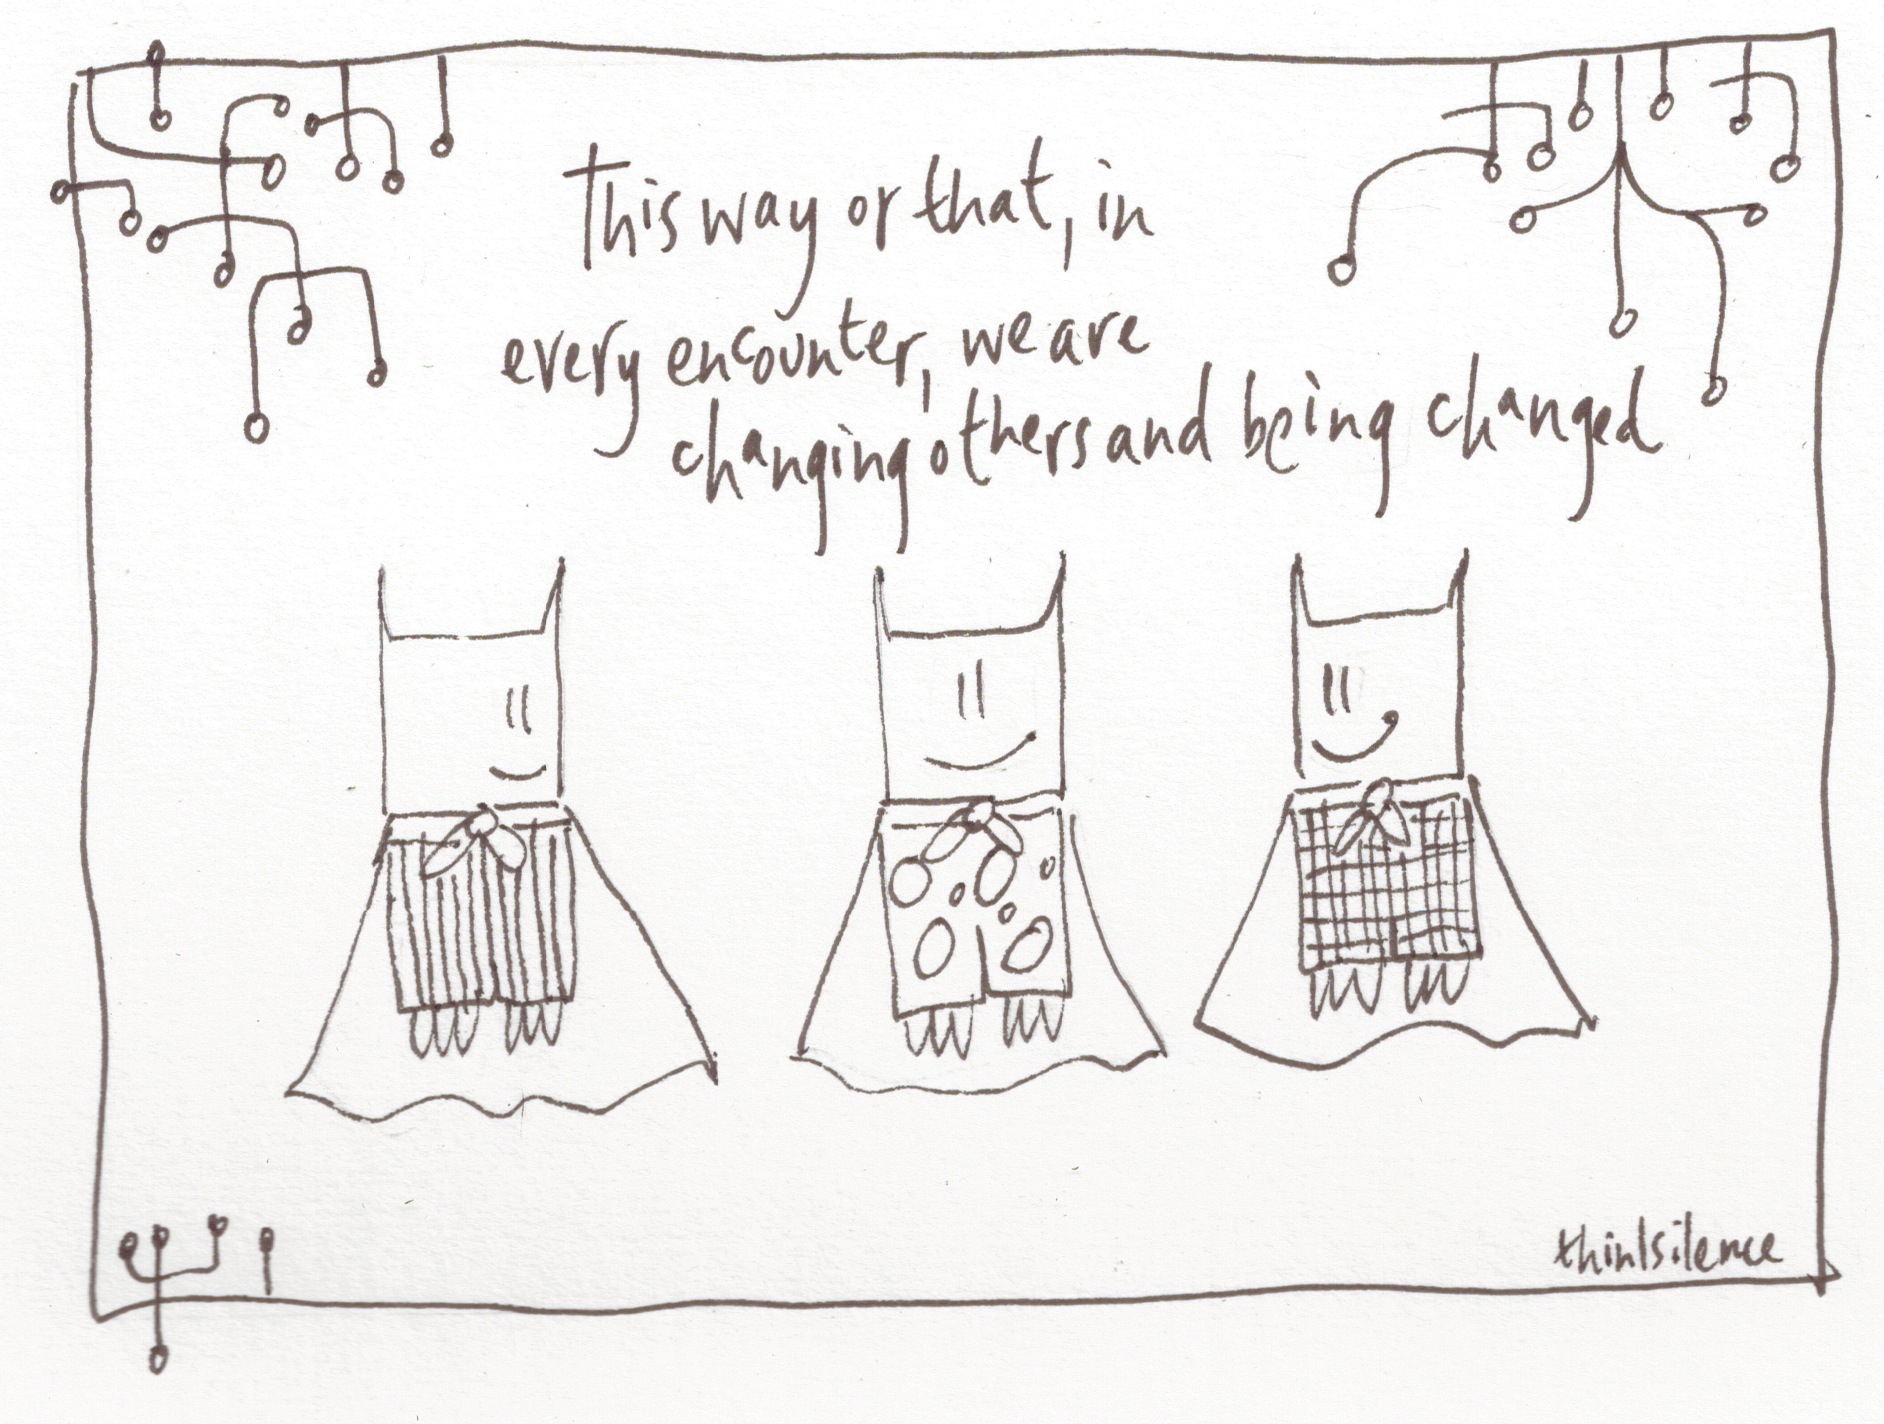 This way or that, in
every encounter, we are
changing others and being changed
thinksilence